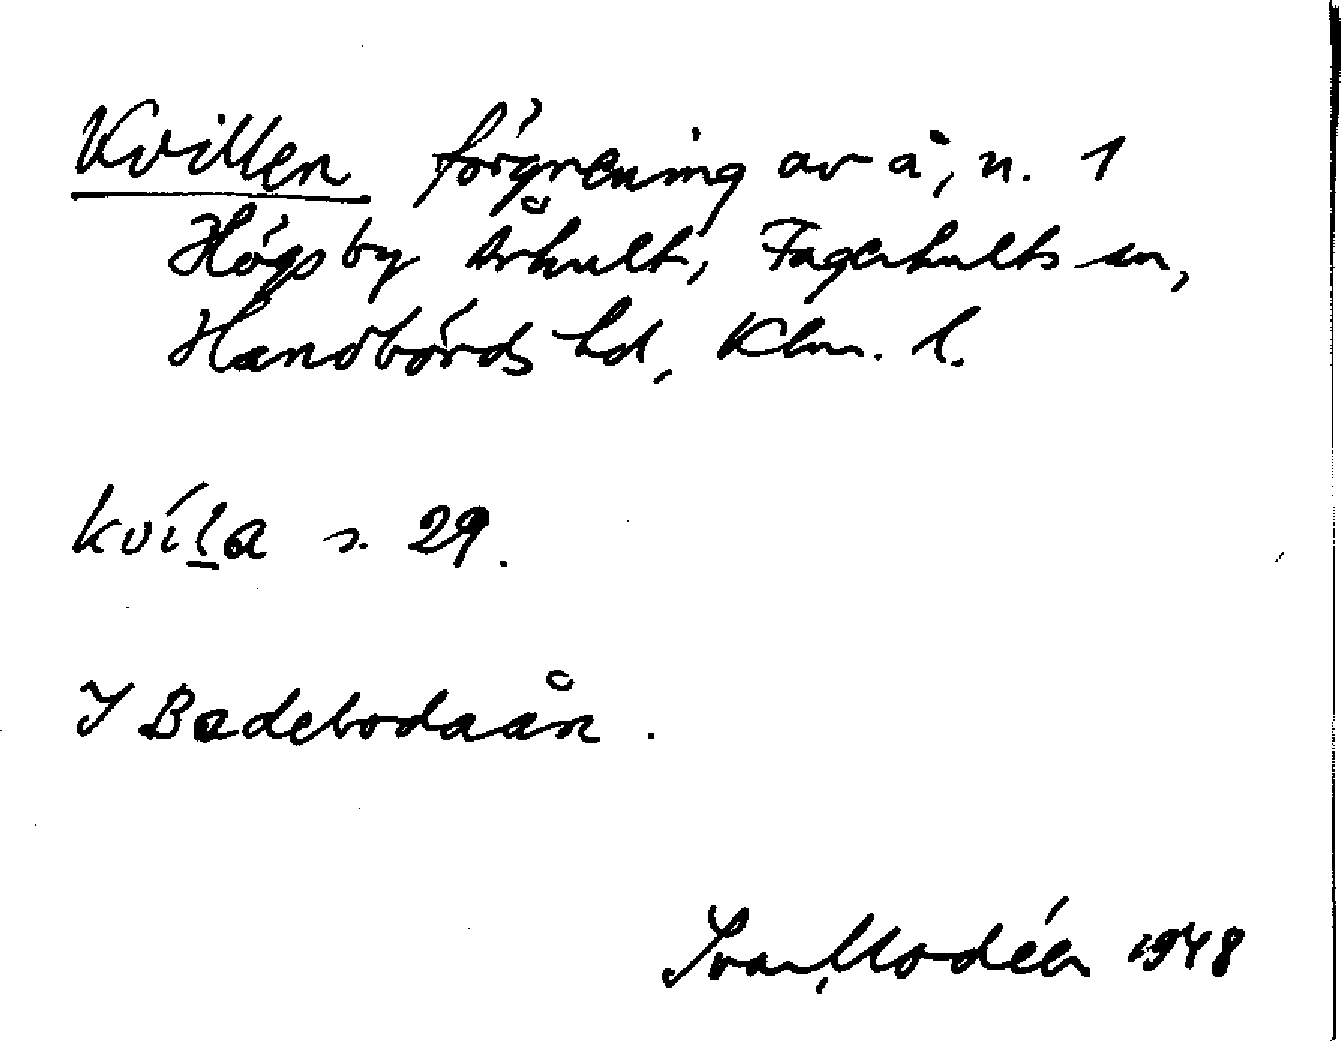 Kvillen förgrening av å, n. 1
Högsby Århult, Fagerhults sn,
Handbörds hd, Klm. l.
kvíl̲a s. 29.
I Badebodaån.
Ivar Modéer 1948